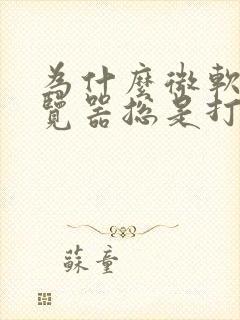 為什麼微軟
覽器總是打
蘇童